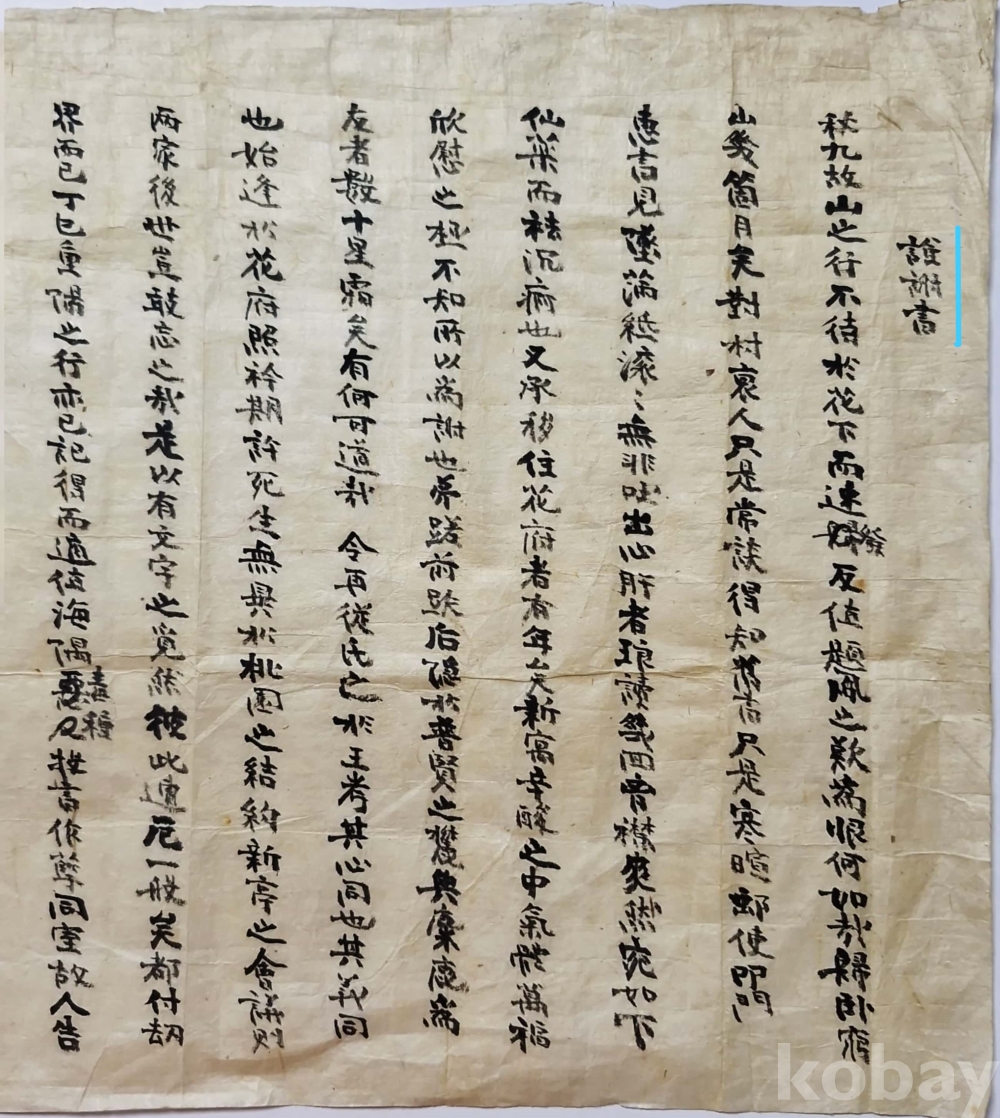 謹謝書
秋九故山之行不待於花下而速發歸反值題鳳之歎爲恨何如哉歸臥窮
山幾箇月矣對村裏人只是常談得知舊書只是寒暄郵使叩門
惠書見墜滿紙滾〻無非吐出心肝者琅讀幾回胷襟爽然宛如下
仙藥而祛沉痾也又承移住花府者有年矣新寓辛酸之中氣體萬福
欣慰之極不知所以爲謝也弟蹉前跌后隱於普賢之麓與麋鹿爲
友者數十星霜矣有何可道哉 令再從氏之於王考其心同也其義同
也始逢於花府照衿期許死生無異於桃園之結約新亭之會議則
兩家後世豈敢忘之哉是以有文字之覓然彼此遭厄一般矣都付劫
界而已丁巳重陽之行亦已記得而適值海隅蠢種惡又牧畜作孼同室故人告
kobay